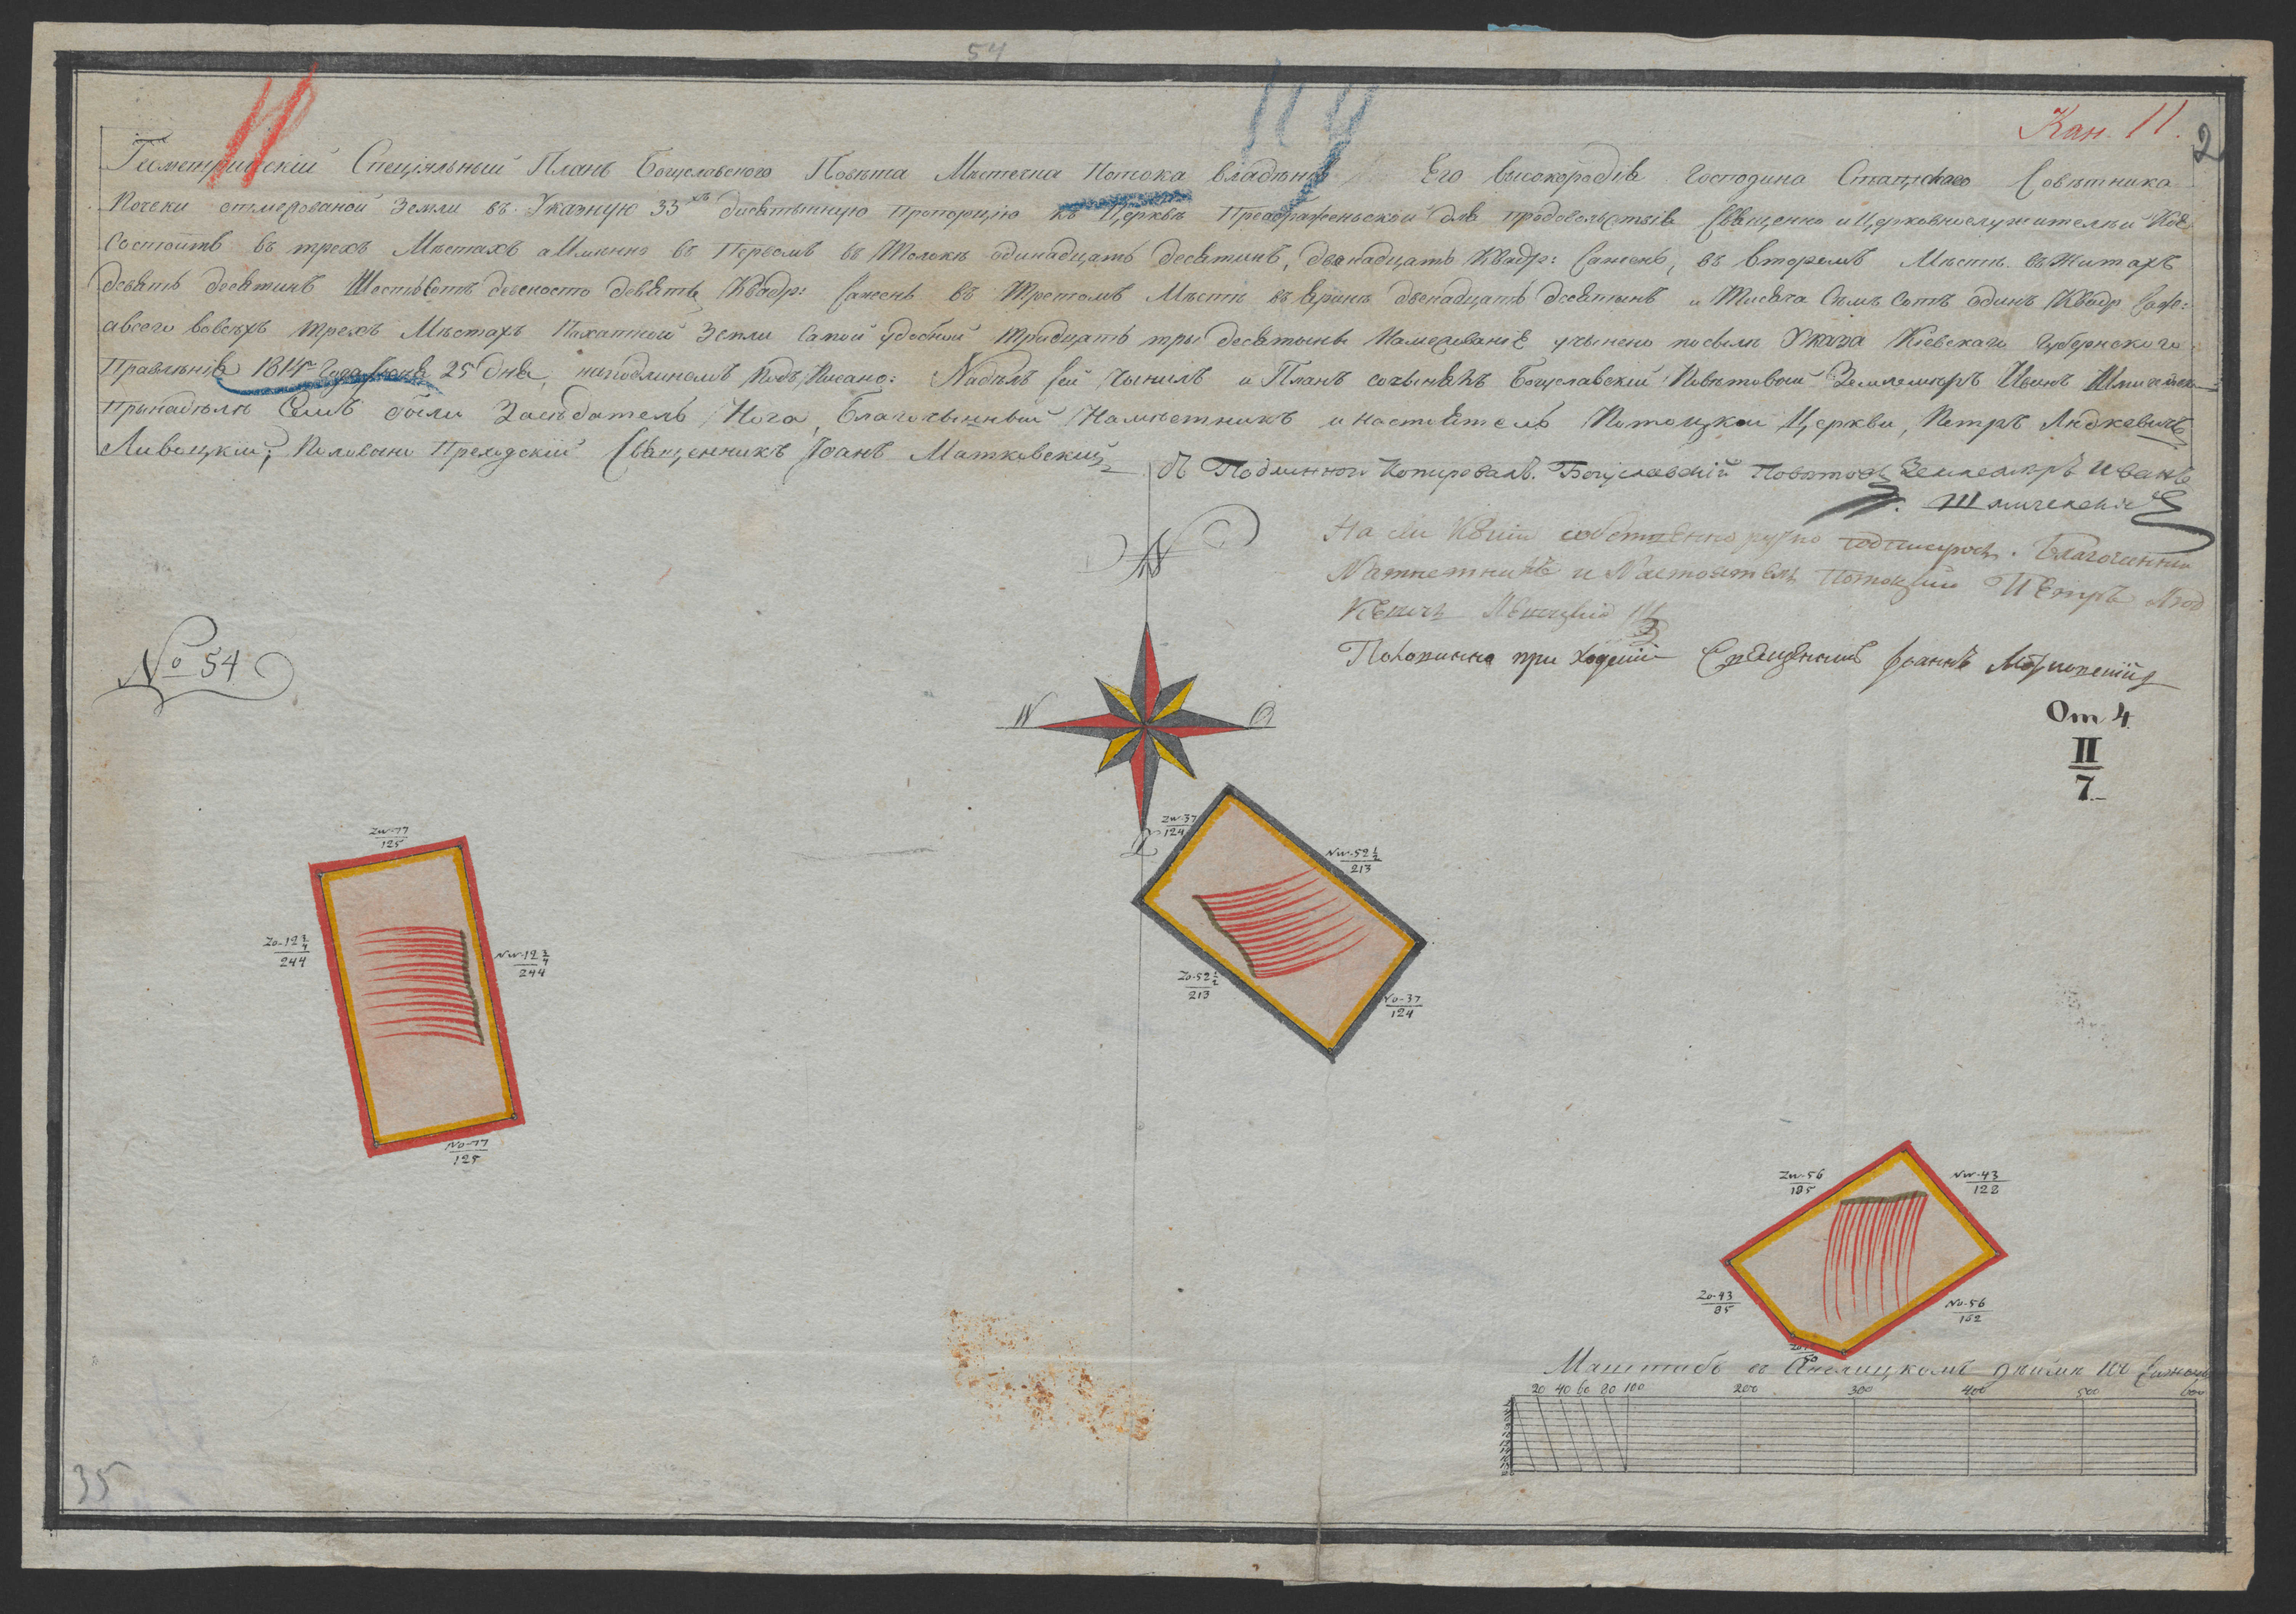 54
Кан. 11.
2
Геометрическій Спеціяльный Планъ Богуславского Повѣта Мѣстечка Потока владѣнія Его высокородія Господина Статского Совѣтника
Почеки отмерованой Земли въ Указную 33хъ десятынную Пропорцію къ Церквѣ Преображенской для продовольствія Священно и Церковнослужителей Кое
Состоитъ въ трехъ Мѣстахъ а Именно въ Первомъ въ Толокѣ одинадцать десятинъ, двенадцать Квадр: Сажень, въ второмъ Мѣстѣ въ Житахъ
девять десятинъ Шестьсотъ девеносто девять Квадр: сажень въ Третомъ Мѣстѣ въ Яринѣ двенадцать десятынъ и Тысяча Семъ Сотъ одинъ Квадр Саже:
а всего вовсехъ трехъ Мѣстахъ Пахатной Земли Самой удобной Тридцать три десятыны Намерованіе учынено посылѣ Указа Кіевскаго Губернского
Правленія 1814го Года Іюня 25 Дня, наподлиномъ Подъ Писано: Надѣлъ сей Чынилъ и Планъ сочынялъ Богуславскій Повѣтовый Землемѣръ Иванъ
Прынадѣлѣ Семъ были Засѣдатель Нога, Благочынный Намѣстникъ и настоятель Потоцкой Церкви, Петръ Людкевичъ
Левицкій, Половино Преходскій Священникъ Іоанъ Матковскій
Съ Подлинного Копировалъ. Богуславскій Повѣтовый Землемѣръ Иванъ
На сей Копіи собственноручно подписуюсь. Благочинный
Намѣстникъ и Настоятель Потоцкій Петръ Люд
кевичъ Левицкій
Половинно при ходскій Священникъ Іоаннъ Матковскій
N
No 54
W
O
Z
От 4.
II
7.
Zw-77
125
Zo-12 3/4
244
Nw-12 3/4
244
No-77
125
Zw-37
124
Nw-52 1/2
213
Zo-52 1/2
213
No-37
124
Zw-56
185
Nw-43
122
Zo-43
85
No-56
152
50
Маштабъ въ Англицкомъ дюймѣ 100 Сажень
20 40 60 80 100 200 300 400 500 600
35